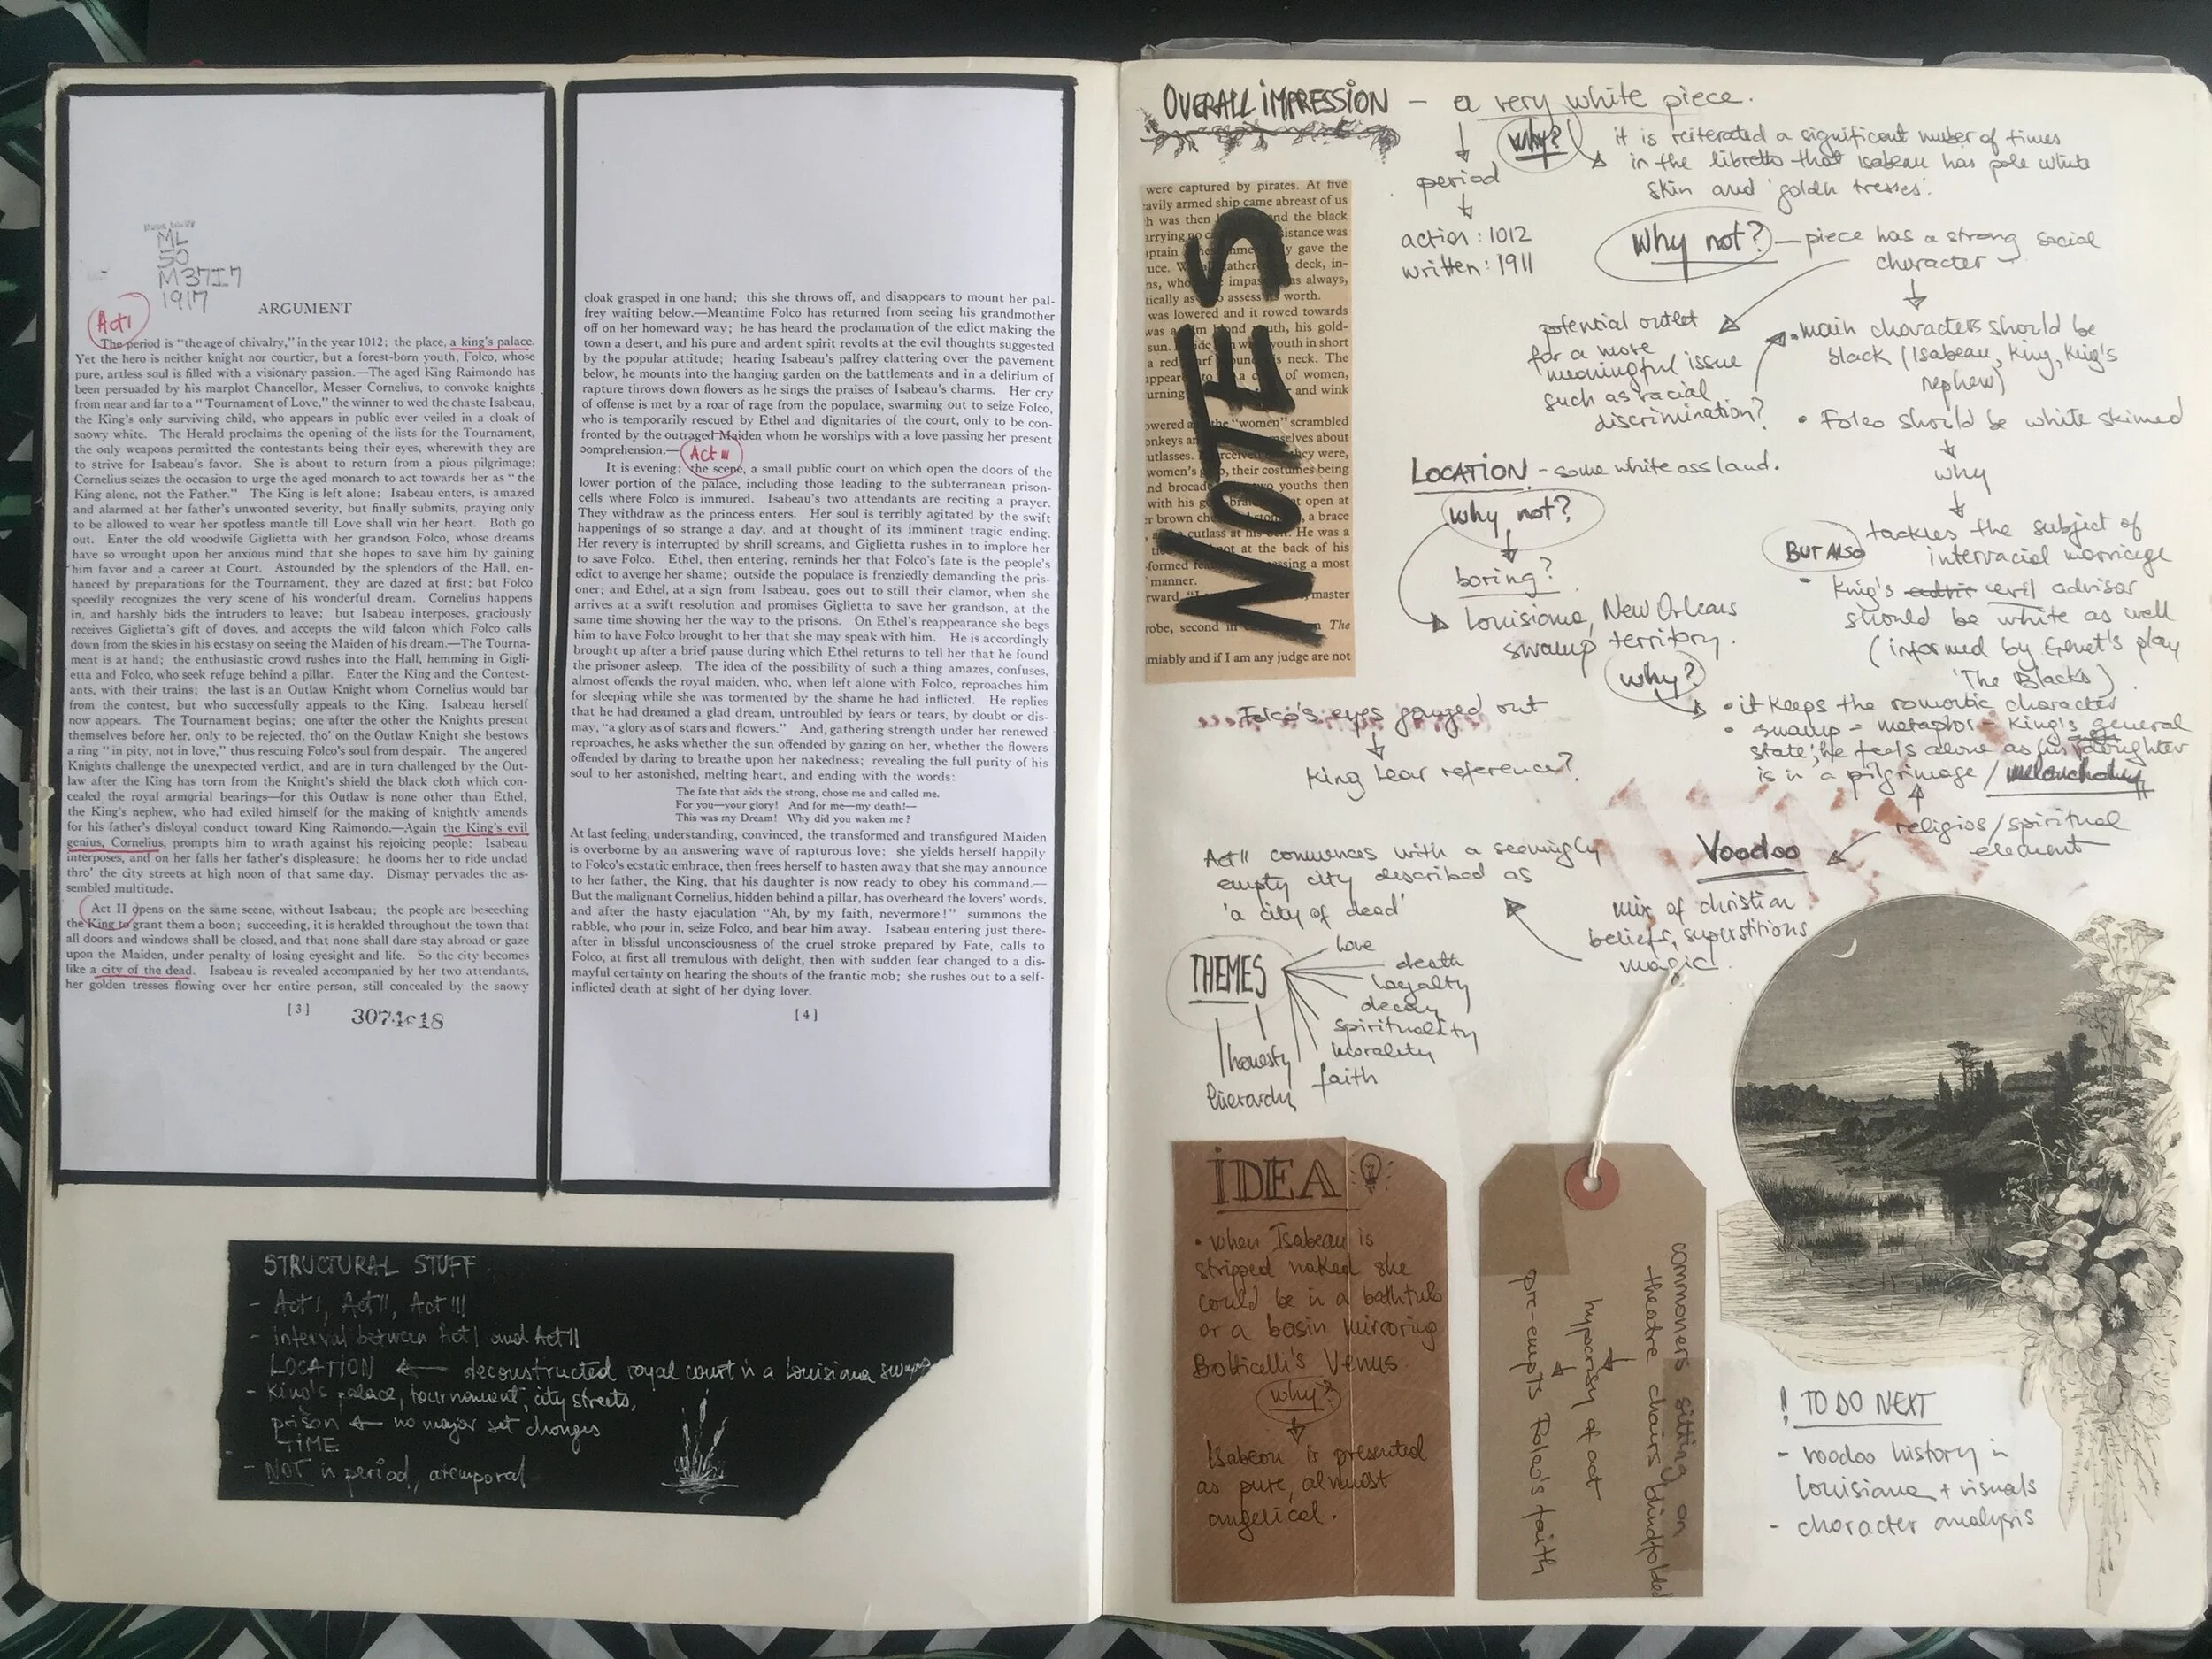 ML
50
M37I7
1917
Act I
ARGUMENT
The period is "the age of chivalry," in the year 1012; the place, a king's palace.
Yet the hero is neither knight nor courtier, but a forest-born youth, Folco, whose
pure, artless soul is filled with a visionary passion.—The aged King Raimondo has
been persuaded by his marplot Chancellor, Messer Cornelius, to convoke knights
from near and far to a "Tournament of Love," the winner to wed the chaste Isabeau,
the King's only surviving child, who appears in public ever veiled in a cloak of
snowy white. The Herald proclaims the opening of the lists for the Tournament,
the only weapons permitted the contestants being their eyes, wherewith they are
to strive for Isabeau's favor. She is about to return from a pious pilgrimage;
Cornelius seizes the occasion to urge the aged monarch to act towards her as "the
King alone, not the Father." The King is left alone; Isabeau enters, is amazed
and alarmed at her father's unwonted severity, but finally submits, praying only
to be allowed to wear her spotless mantle till Love shall win her heart. Both go
out. Enter the old woodwife Giglietta with her grandson Folco, whose dreams
have so wrought upon her anxious mind that she hopes to save him by gaining
him favor and a career at Court. Astounded by the splendors of the Hall, en-
hanced by preparations for the Tournament, they are dazed at first; but Folco
speedily recognizes the very scene of his wonderful dream. Cornelius happens
in, and harshly bids the intruders to leave; but Isabeau interposes, graciously
receives Giglietta's gift of doves, and accepts the wild falcon which Folco calls
down from the skies in his ecstasy on seeing the Maiden of his dream.—The Tourna-
ment is at hand; the enthusiastic crowd rushes into the Hall, hemming in Gigli-
etta and Folco, who seek refuge behind a pillar. Enter the King and the Contest-
ants, with their trains; the last is an Outlaw Knight whom Cornelius would bar
from the contest, but who successfully appeals to the King. Isabeau herself
now appears. The Tournament begins; one after the other the Knights present
themselves before her, only to be rejected, tho' on the Outlaw Knight she bestows
a ring "in pity, not in love," thus rescuing Folco's soul from despair. The angered
Knights challenge the unexpected verdict, and are in turn challenged by the Out-
law after the King has torn from the Knight's shield the black cloth which con-
cealed the royal armorial bearings—for this Outlaw is none other than Ethel,
the King's nephew, who had exiled himself for the making of knightly amends
for his father's disloyal conduct toward King Raimondo.—Again the King's evil
genius, Cornelius, prompts him to wrath against his rejoicing people: Isabeau
interposes, and on her falls her father's displeasure; he dooms her to ride unclad
thro' the city streets at high noon of that same day. Dismay pervades the as-
sembled multitude.
Act II opens on the same scene, without Isabeau; the people are beseeching
the King to grant them a boon; succeeding, it is heralded throughout the town that
all doors and windows shall be closed, and that none shall dare stay abroad or gaze
upon the Maiden, under penalty of losing eyesight and life. So the city becomes
like a city of the dead. Isabeau is revealed accompanied by her two attendants,
her golden tresses flowing over her entire person, still concealed by the snowy
[3]
cloak grasped in one hand; this she throws off, and disappears to mount her pal-
frey waiting below.—Meantime Folco has returned from seeing his grandmother
off on her homeward way; he has heard the proclamation of the edict making the
town a desert, and his pure and ardent spirit revolts at the evil thoughts suggested
by the popular attitude; hearing Isabeau's palfrey clattering over the pavement
below, he mounts into the hanging garden on the battlements and in a delirium of
rapture throws down flowers as he sings the praises of Isabeau's charms. Her cry
of offense is met by a roar of rage from the populace, swarming out to seize Folco,
who is temporarily rescued by Ethel and dignitaries of the court, only to be con-
fronted by the outraged Maiden whom he worships with a love passing her present
comprehension.—
Act III
It is evening; the scene, a small public court on which open the doors of the
lower portion of the palace, including those leading to the subterranean prison-
cells where Folco is immured. Isabeau's two attendants are reciting a prayer.
They withdraw as the princess enters. Her soul is terribly agitated by the swift
happenings of so strange a day, and at thought of its imminent tragic ending.
Her revery is interrupted by shrill screams, and Giglietta rushes in to implore her
to save Folco. Ethel, then entering, reminds her that Folco's fate is the people's
edict to avenge her shame; outside the populace is frenziedly demanding the pris-
oner; and Ethel, at a sign from Isabeau, goes out to still their clamor, when she
arrives at a swift resolution and promises Giglietta to save her grandson, at the
same time showing her the way to the prisons. On Ethel's reappearance she begs
him to have Folco brought to her that she may speak with him. He is accordingly
brought up after a brief pause during which Ethel returns to tell her that he found
the prisoner asleep. The idea of the possibility of such a thing amazes, confuses,
almost offends the royal maiden, who, when left alone with Folco, reproaches him
for sleeping while she was tormented by the shame he had inflicted. He replies
that he had dreamed a glad dream, untroubled by fears or tears, by doubt or dis-
may, "a glory as of stars and flowers." And, gathering strength under her renewed
reproaches, he asks whether the sun offended by gazing on her, whether the flowers
offended by daring to breathe upon her nakedness; revealing the full purity of his
soul to her astonished, melting heart, and ending with the words:
The fate that aids the strong, chose me and called me.
For you—your glory! And for me—my death!—
This was my Dream! Why did you waken me?
At last feeling, understanding, convinced, the transformed and transfigured Maiden
is overborne by an answering wave of rapturous love; she yields herself happily
to Folco's ecstatic embrace, then frees herself to hasten away that she may announce
to her father, the King, that his daughter is now ready to obey his command.—
But the malignant Cornelius, hidden behind a pillar, has overheard the lovers' words,
and after the hasty ejaculation "Ah, by my faith, nevermore!" summons the
rabble, who pour in, seize Folco, and bear him away. Isabeau entering just there-
after in blissful unconsciousness of the cruel stroke prepared by Fate, calls to
Folco, at first all tremulous with delight, then with sudden fear changed to a dis-
mayful certainty on hearing the shouts of the frantic mob; she rushes out to a self-
inflicted death at sight of her dying lover.
[4]
STRUCTURAL STUFF
- Act I, Act II, Act III
- interval between Act I and Act II
LOCATION ← deconstructed royal court in a Louisiana swamp
- King's palace, tournament, city streets,
prison ← no major set changes
TIME
- NOT in period, atemporal
OVERALL IMPRESSION - a very white piece.
why?
it is reiterated a significant nuber of times
in the libretto that Isabeau has pale white
skin and 'golden tresses'.
period
action: 1012
written: 1911
Why not? - piece has a strong social
character
potential outlet
for a more
meaningful issue
such as racial
discrimination?
• main characters should be
black (Isabeau, King, King's
nephew)
• Folco should be white skinned
why
tackles the subject of
interracial marriage
BUT ALSO
• King's evil advisor
should be white as well
(informed by Genet's play
'The Blacks').
NOTES
were captured by pirates. At five
ship came abreast of us
was then and the black
was lowered and it rowed towards
The
miably and if I am any judge are not
LOCATION - some white ass land.
why not?
boring?
Louisiana, New Orleans
swamp territory.
why?
• it keeps the romantic character
• swamp - metaphor - King's general
state; he feels alone as his daughter
is in a pilgrimage / melancholy
Folco's eyes gouged out
King Lear reference?
religios/spiritual
element
Voodoo
mix of christian
beliefs, superstitions
magic
Act II commences with a seemingly
empty city described as
'a city of dead'
THEMES
love
death
loyalty
decay
spirituality
morality
faith
honesty
hierarchy
IDEA
• when Isabeau is
stripped naked she
could be in a bathtub
or a basin mirroring
Botticelli's Venus
why?
Isabeau is presented
as pure, almost
angelical.
commoners sitting on
theatre chairs blindfolded
hypocrisy of act
pre-empts Folco's faith
! TO DO NEXT
- voodoo history in
Louisiana + visuals
- character analysis